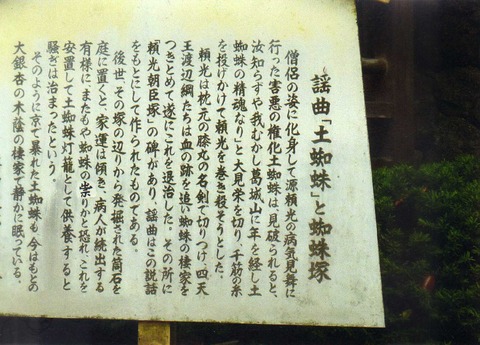 謡曲「土蜘蛛」と蜘蛛塚
僧侶の姿に化身して源頼光の病気見舞に
行った害悪の権化土蜘蛛は見破られると、
汝知らずや我むかし葛城山に年を経し土
蜘蛛の精魂なり」と大見栄を切り、千筋の糸
を投げかけて頼光を巻き殺そうとした。
頼光は枕元の膝丸の名剣で切りつけ、四天
王渡辺綱たちは血の跡を追い蜘蛛の棲家を
つきとめて遂にこれを退治した。その所に
「頼光朝臣塚」の碑があり、謡曲はこの説話
をもとにして作られたものである。
後世、その塚の辺りから発掘された筒石を
庭に置くと、家運は傾き、病人が続出する
有様に、またもや蜘蛛の祟りかと恐れ、これを
安置して土蜘蛛灯籠として供養すると
騒ぎは治まったという。
そのように京で暴れた土蜘蛛も、今はもとの
大銀杏の木蔭の棲家で静かに眠っている。